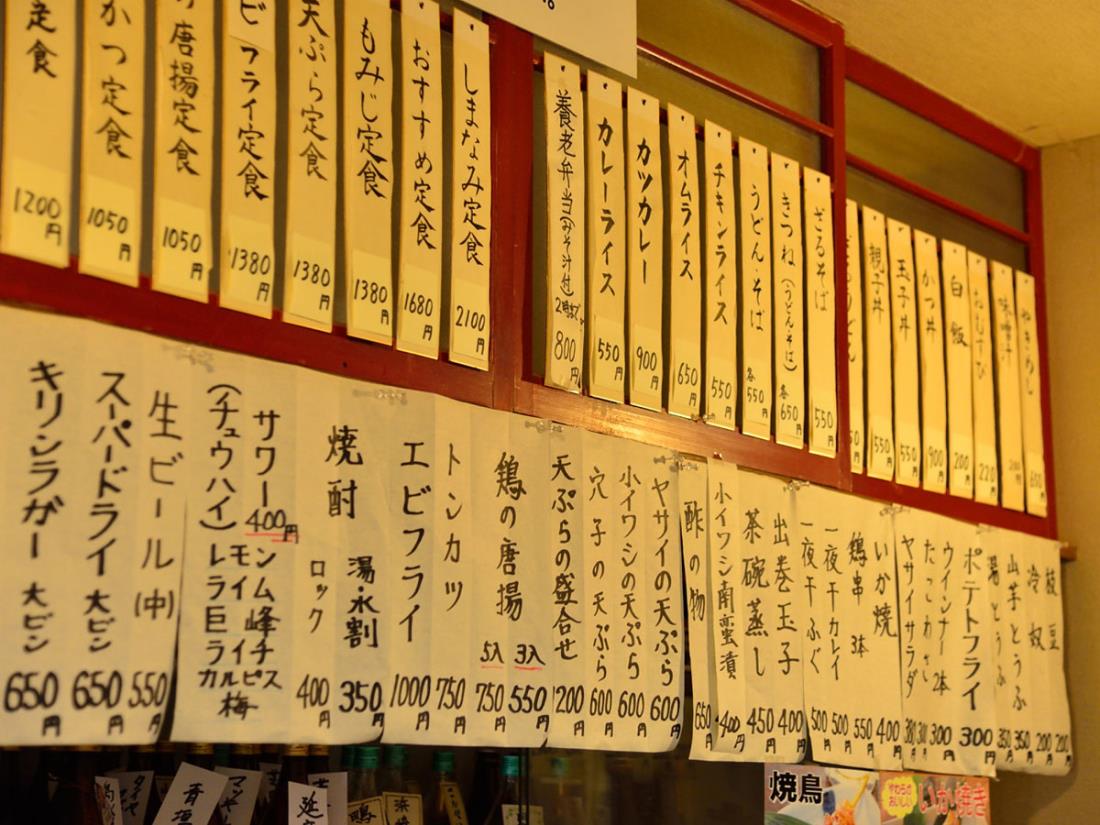 定食 1200円
かつ定食 1050円
唐揚定食 1050円
ビフライ定食 1380円
天ぷら定食 1380円
もみじ定食 1380円
おすすめ定食 1680円
しまなみ定食 2100円
養老弁当(みそ汁付) 800円
カレーライス 550円
カツカレー 900円
オムライス 650円
チキンライス 550円
うどん・そば 各550円
きつね(うどん・そば) 各650円
ざるそば 550円
親子丼 550円
玉子丼 550円
かつ丼 900円
白飯 200円
おむすび 220円
味噌汁 200円
やきめし 650円
キリンラガー 大ビン 650円
スーパードライ 大ビン 650円
生ビール(中) 550円
(チュウハイ)
サワー 400円
レモン
ライム
巨峰
ライチ
カルピス
梅
焼酎
ロック 400円
湯・水割 350円
エビフライ 1000円
トンカツ 750円
鶏の唐揚
5入 750円
3入 550円
天ぷらの盛合せ 1200円
穴子の天ぷら 600円
小イワシの天ぷら 600円
ヤサイの天ぷら 600円
酢の物 650円
小イワシ南蛮漬 400円
茶碗蒸し 450円
出巻玉子 400円
一夜干ふぐ 500円
一夜干カレイ 500円
鶏串 3本 550円
いか焼 400円
ヤサイサラダ
たこわさ
ウインナー 2本 300円
ポテトフライ 300円
湯どうふ 350円
山芋とうふ 350円
冷奴 200円
枝豆 200円
焼鳥
やわらか
おいしい
いか焼き